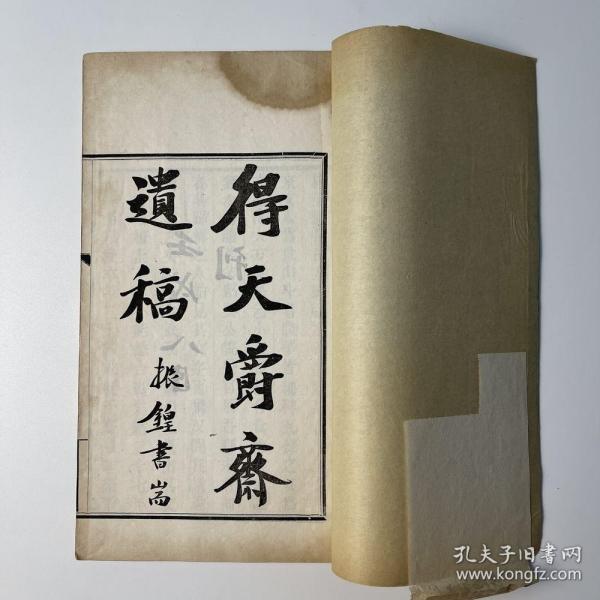 得天爵齋
遺稿
振鍠書耑
孔夫子旧书网
www.kongfz.com